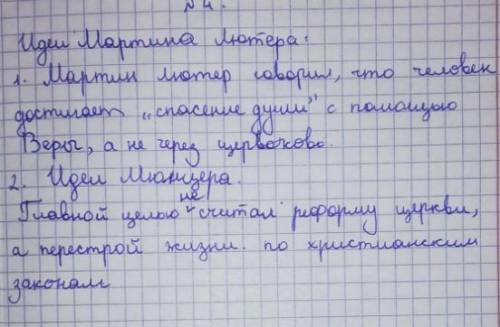 №4.
Идеи Мартина Лютера:
1. Мартин Лютер говорил, что человек
достигает „спасение души" с помощью
Веры, а не через церковово.
2. Идеи Мюнцера.
не
Главной целью считал реформу церкви,
а перестрой жизни. по христианским
законам